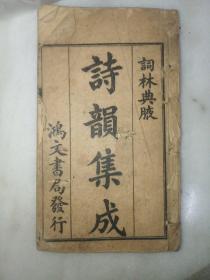 詞林典腋
詩韻集成
鴻文書局發行